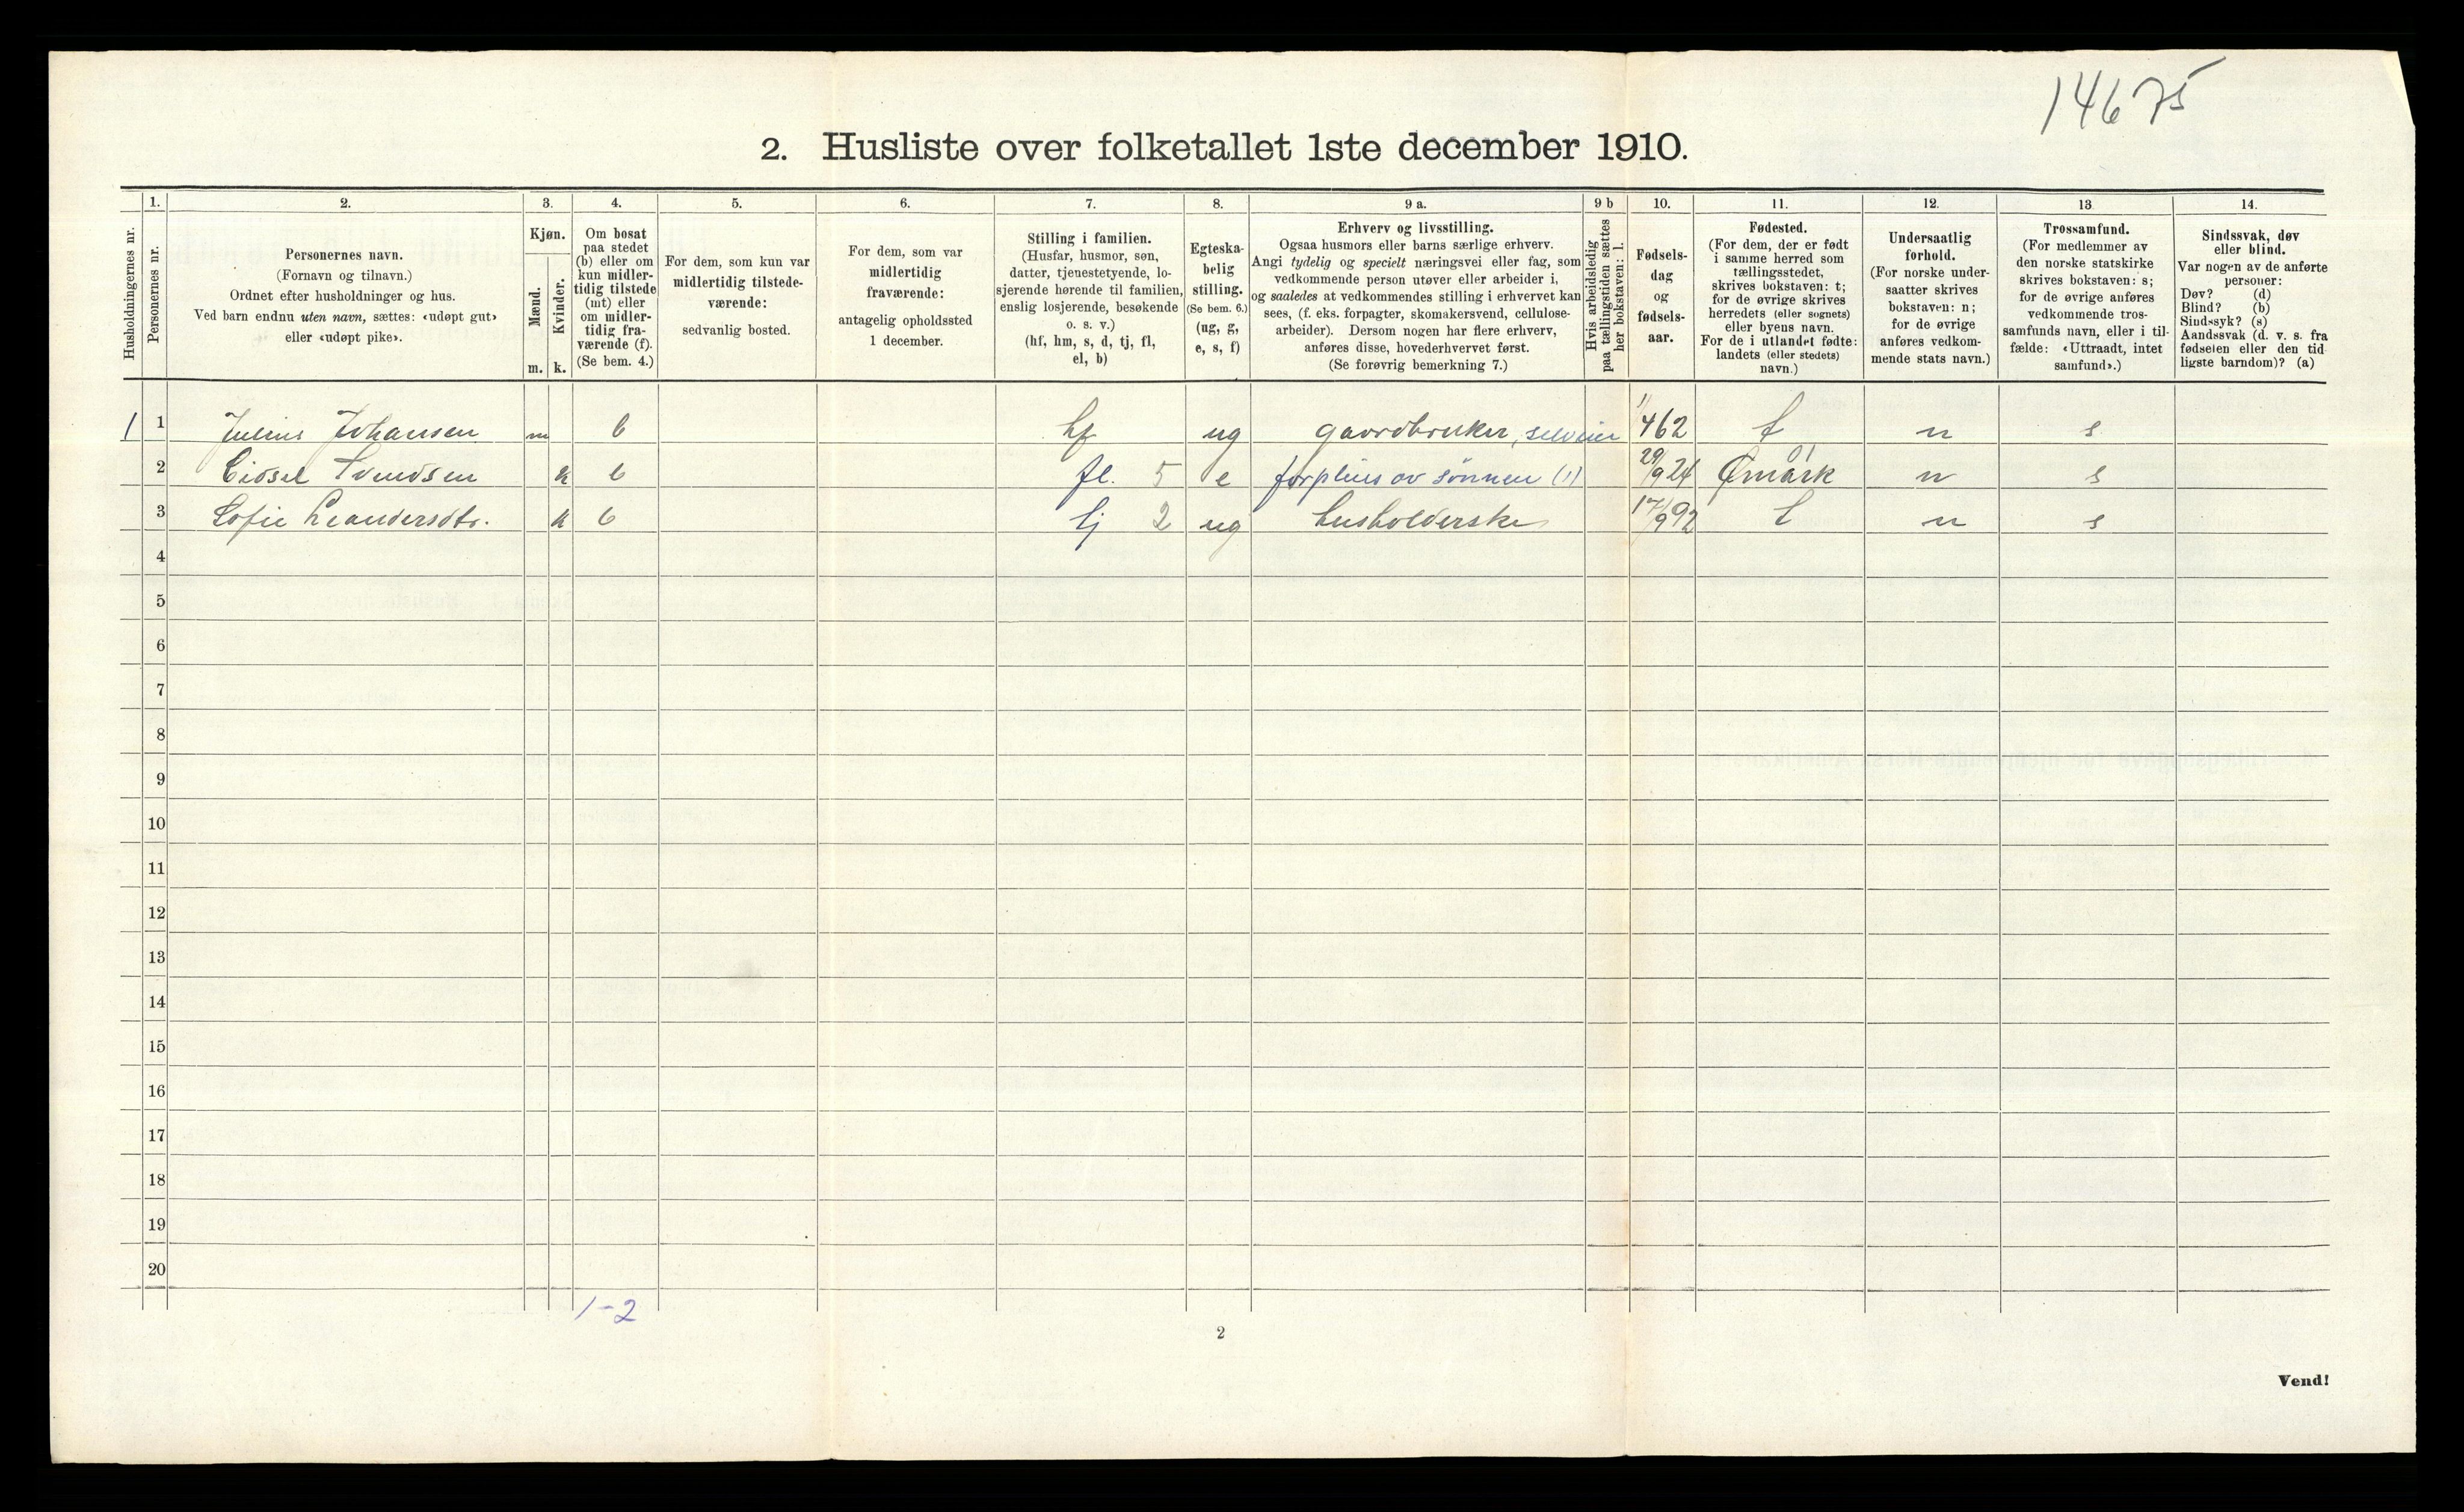 14675
2. Husliste over folketallet 1ste december 1910.
1. 2. 3. 4. 5. 6. 7. 8. 9 a. 9 b 10. 11. 12. 13. 14.
Husholdningernes nr.
Personernes nr.
Personernes navn.
(Fornavn og tilnavn.)
Ordnet efter husholdninger og hus.
Ved barn endnu uten navn, sættes: «udøpt gut»
eller «udøpt pike».
Kjøn.
Mænd.
Kvinder.
m. k.
Om bosat
paa stedet
(b) eller om
kun midler-
tidig tilstede
(mt) eller
om midler-
tidig fra-
værende (f).
(Se bem. 4.)
For dem, som kun var
midlertidig tilstede-
værende:
sedvanlig bosted.
For dem, som var
midlertidig
fraværende:
antagelig opholdssted
1 december.
Stilling i familien.
(Husfar, husmor, søn,
datter, tjenestetyende, lo-
sjerende hørende til familien,
enslig losjerende, besøkende
o. s. v.)
(hf, hm, s, d, tj, fl,
el, b)
Egteska-
belig
stilling.
(Se bem. 6.)
(ug, g,
e, s, f)
Erhverv og livsstilling.
Ogsaa husmors eller barns særlige erhverv.
Angi tydelig og specielt næringsvei eller fag, som
vedkommende person utøver eller arbeider i,
og saaledes at vedkommendes stilling i erhvervet kan
sees, (f. eks. forpagter, skomakersvend, cellulose-
arbeider). Dersom nogen har flere erhverv,
anføres disse, hovederhvervet først.
(Se forøvrig bemerkning 7.)
Hvis arbeidsledig
paa tællingstiden sættes
her bokstaven: l.
Fødsels-
dag
og
fødsels-
aar.
Fødested.
(For dem, der er født
i samme herred som
tællingsstedet,
skrives bokstaven: t;
for de øvrige skrives
herredets (eller sognets)
eller byens navn.
For de i utlandet fødte:
landets (eller stedets)
navn.)
Undersaatlig
forhold.
(For norske under-
saatter skrives
bokstaven: n;
for de øvrige
anføres vedkom-
mende stats navn.)
Trossamfund.
(For medlemmer av
den norske statskirke
skrives bokstaven: s;
for de øvrige anføres
vedkommende tros-
samfunds navn, eller i til-
fælde: «Uttraadt, intet
samfund».)
Sindssvak, døv
eller blind.
Var nogen av de anførte
personer:
Døv? (d)
Blind? (b)
Sindssyk? (s)
Aandssvak (d. v. s. fra
fødselen eller den tid-
ligste barndom)? (a)
1 1 Julius Johansen m b hf ug gaardbruker, selveier 1/4 62 t n s
2 Sidsel Svendsen k b fl. 5 e forpleies av sønnen (1) 29/9 24 Ømark 01 n s
3 Sofie Leandersdtr. k b tj 2 ug husholderske 17/9 92 t n s
4
5
6
7
8
9
10
11
12
13
14
15
16
17
18
19
20
1-2
2
Vend!